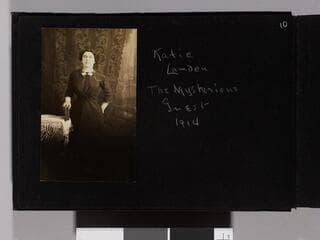 10
Katie
Lamden
The Mysterious
Guest
1914